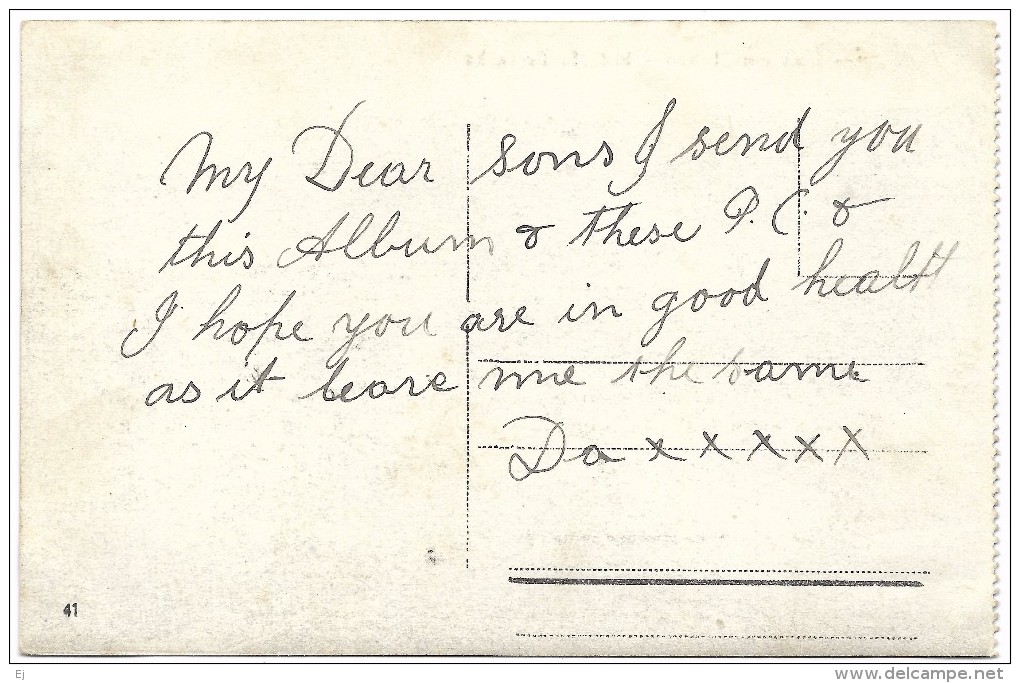 My Dear sons I send you
this Album & these P.C. &
I hope you are in good healtH
as it leare me the same
Da x x x x x
41
Ej
www.delcampe.net